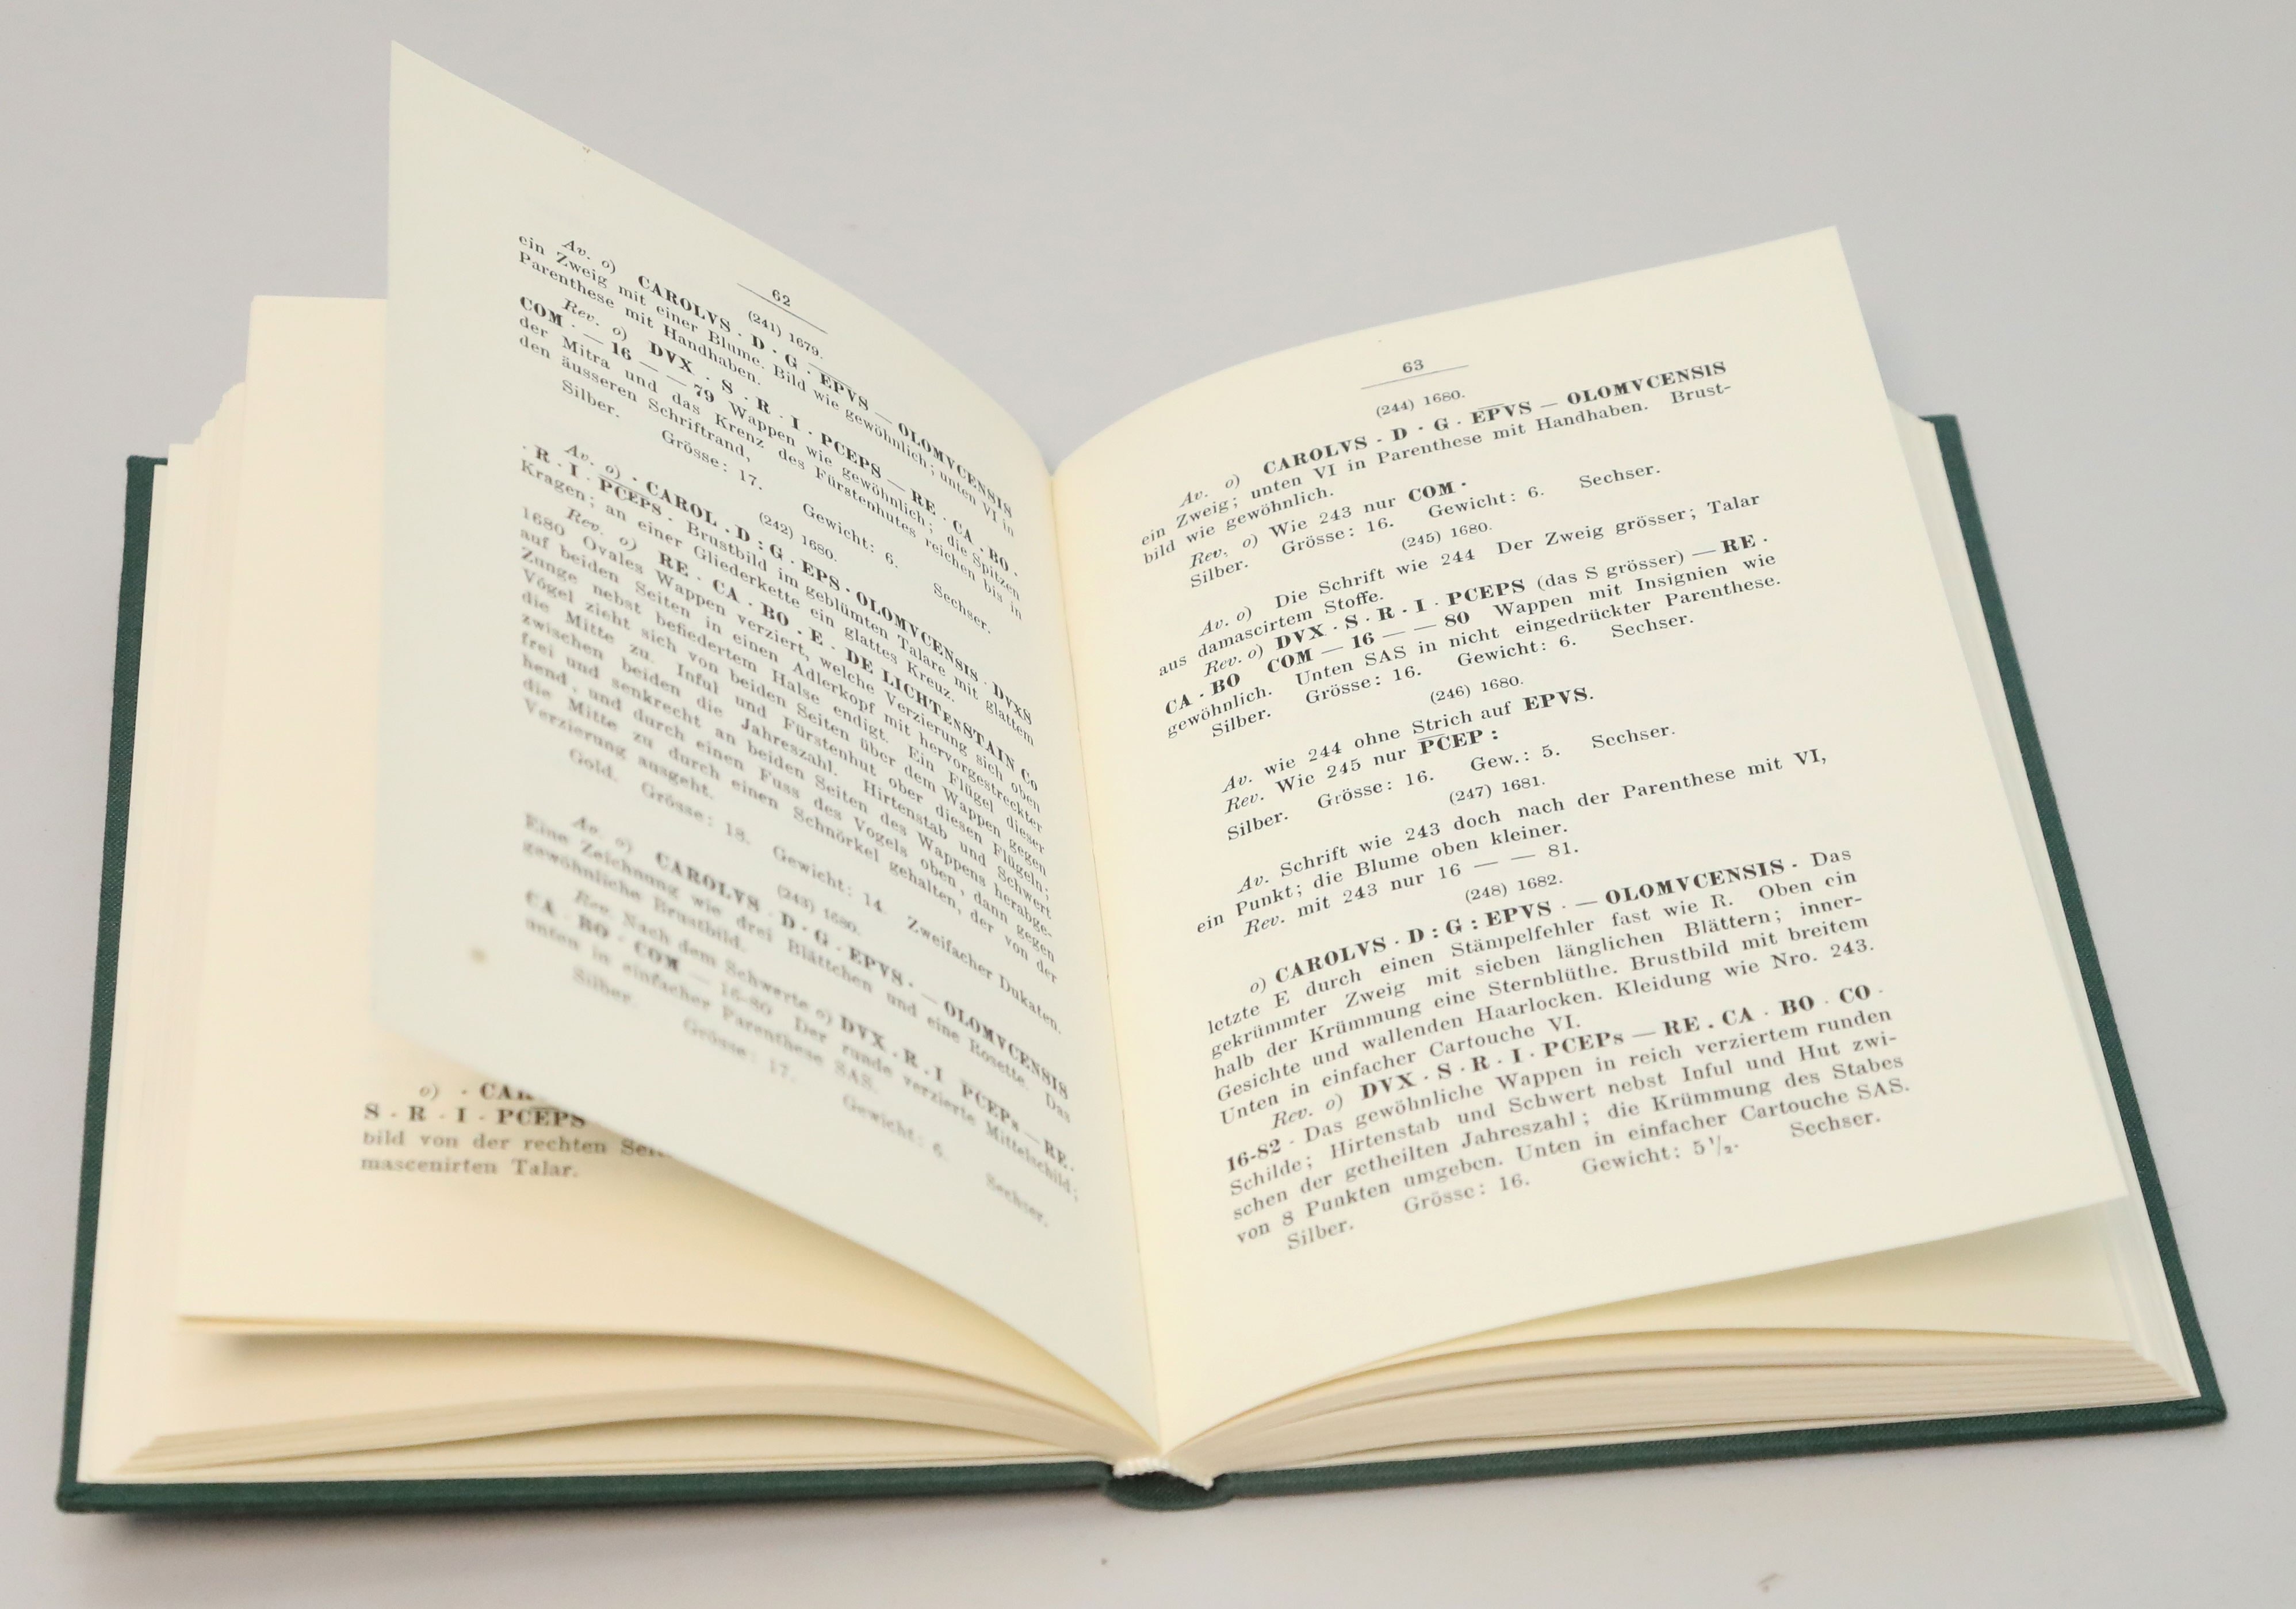 62
(241) 1679.
Av. o) CAROLVS · D · G · EPVS — OLOMVCENSIS
ein Zweig mit einer Blume. Bild wie gewöhnlich; unten VI in
Parenthese mit Handhaben.
Rev. o) DVX · S · R · I · PCEPS — RE · CA · BO ·
COM · — 16 — — 79 Wappen wie gewöhnlich; die Spitzen
der Mitra und das Krenz des Fürstenhutes reichen bis in
den äusseren Schriftrand,
Silber. Grösse: 17. Gewicht: 6. Sechser.
(242) 1680.
Av. o) · CAROL · D : G · EPS · OLOMVCENSIS · DVXS
· R · I · PCEPS · Brustbild im geblümten Talare mit glattem
Kragen; an einer Gliederkette ein glattes Kreuz.
Rev. o) RE · CA · BO · E · DE LICHTENSTAIN Co
1680 Ovales Wappen verziert, welche Verzierung sich oben
auf beiden Seiten in einen Adlerkopf mit hervorgestreckter
Zunge nebst befiedertem Halse endigt. Ein Flügel dieser
Vögel zieht sich von beiden Seiten über dem Wappen gegen
die Mitte zu. Inful und Fürstenhut ober diesen Flügeln;
zwischen beiden die Jahreszahl. Hirtenstab und Schwert
frei und senkrecht an beiden Seiten des Wappens herabge-
hend, und durch einen Fuss des Vogels oben, dann gegen
die Mitte zu durch einen Schnörkel gehalten, der von der
Verzierung ausgeht.
Gold. Grösse: 18. Gewicht: 14. Zweifacher Dukaten.
(243) 1680.
Av. o) CAROLVS · D · G · EPVS · — OLOMVCENSIS
Eine Zeichnung wie drei Blättchen und eine Rosette. Das
gewöhnliche Brustbild.
Rev. Nach dem Schwerte o) DVX · R · I PCEPs — RE ·
CA · BO · COM — 16-80 Der runde verzierte Mittelschild;
unten in einfacher Parenthese SAS.
Silber. Grösse: 17. Gewicht: 6. Sechser.
o) · CAR
S · R · I · PCEPS
bild von der rechten
mascenirten Talar.
63
(244) 1680.
Av. o) CAROLVS · D · G · EPVS — OLOMVCENSIS
ein Zweig; unten VI in Parenthese mit Handhaben. Brust-
bild wie gewöhnlich.
Rev. o) Wie 243 nur COM ·
Silber. Grösse: 16. Gewicht: 6. Sechser.
(245) 1680.
Av. o) Die Schrift wie 244 Der Zweig grösser; Talar
aus damascirtem Stoffe.
Rev. o) DVX · S · R · I · PCEPS (das S grösser) — RE ·
CA · BO COM — 16 — — 80 Wappen mit Insignien wie
gewöhnlich. Unten SAS in nicht eingedrückter Parenthese.
Silber. Grösse: 16. Gewicht: 6. Sechser.
(246) 1680.
Av. wie 244 ohne Strich auf EPVS.
Rev. Wie 245 nur PCEP :
Silber. Grösse: 16. Gew.: 5. Sechser.
(247) 1681.
Av. Schrift wie 243 doch nach der Parenthese mit VI,
ein Punkt; die Blume oben kleiner.
Rev. mit 243 nur 16 — — 81.
(248) 1682.
o) CAROLVS · D : G : EPVS · — OLOMVCENSIS · Das
letzte E durch einen Stämpelfehler fast wie R. Oben ein
gekrümmter Zweig mit sieben länglichen Blättern; inner-
halb der Krümmung eine Sternblüthe. Brustbild mit breitem
Gesichte und wallenden Haarlocken. Kleidung wie Nro. 243.
Unten in einfacher Cartouche VI.
Rev. o) DVX · S · R · I · PCEPs — RE · CA · BO · CO ·
16-82 · Das gewöhnliche Wappen in reich verziertem runden
Schilde; Hirtenstab und Schwert nebst Inful und Hut zwi-
schen der getheilten Jahreszahl; die Krümmung des Stabes
von 8 Punkten umgeben. Unten in einfacher Cartouche SAS.
Silber. Grösse: 16. Gewicht: 5 1/2. Sechser.